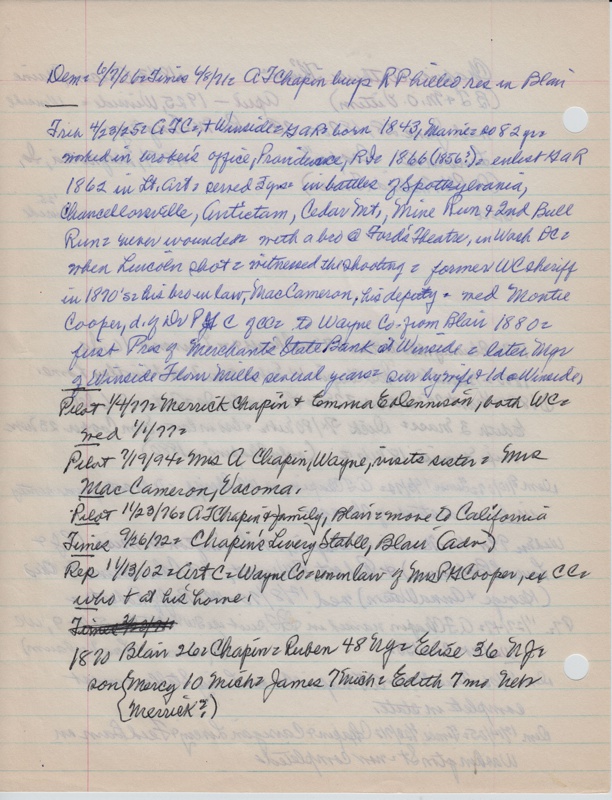 Dem= 6/7/06= Times 4/8/71= A F Chapin buys R P hilled res in Blair
Trib 4/23/25= A F C=, + Winside= GaR= born 1843, Maine= ae 82 yr=
worked in broker's office, Providence, RI= 1866 (1856?)= enlist GaR
1862 in Lt. Art= served 3 yrs= in battles of Spottsylvania,
Chancellorsville, Antietam, Cedar Mt, Mine Run & 2nd Bull
Run= never wounded= with a bro @ Ford's Theatre, in Wash DC=
when Lincoln shot= witnessed the shooting= former WC sheriff
in 1870's= his bro in law, Mac Cameron, his deputy= med Montie
Cooper, d. of Dr P C of CC= to Wayne Co. from Blair 1880=
first Pres of Merchants State Bank at Winside= later Mgr
of Winside Flour Mills several years= sur by wife & 1 d @ Winside,
Pilot 1/4/77= Merrick Chapin & Emma E Dennison, both WC=
med 1/1/77=
Pilot 7/19/94= Mrs A Chapin, Wayne, visits sister= Mrs
Mac Cameron, Tacoma.
Pilot 11/23/76= A F Chapin & family, Blair= move to California
Times 9/26/72= Chapin's Livery Stable, Blair (adv)
Rep 11/13/02= Art C= Wayne Co= son in law of Mrs P H Cooper, ex CC=
who + at his home.
Times
1870 Blair 26= Chapin= Ruben 48 Ny= Elise 36 NJ=
son {Mercy 10 Mich= James 7 Mich= Edith 7 mo Neb
{Merrick?)